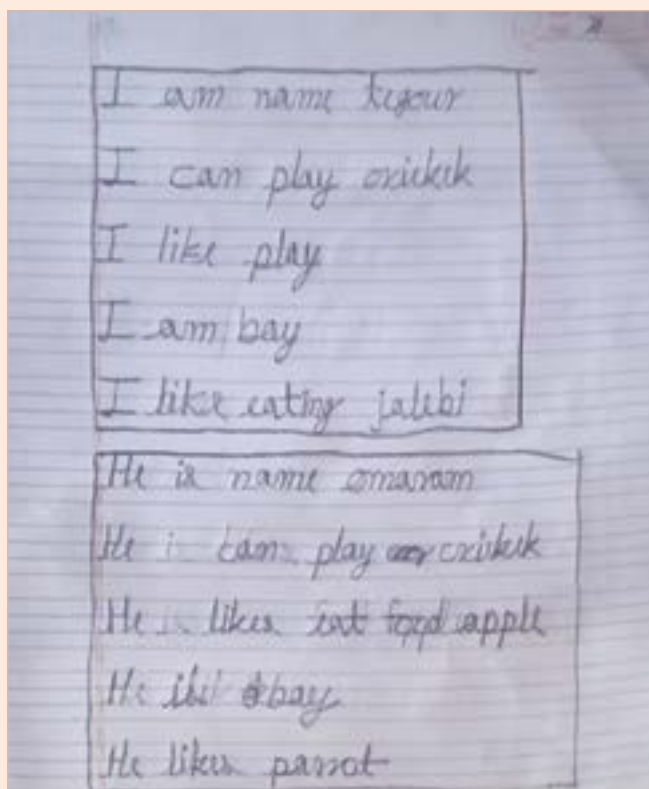 I am name keyour
I can play crickek
I like play
I am bay
I like eating jalebi
He is name omaram
He can play crickek
He likes eat food apple
He bay
He likes parrot